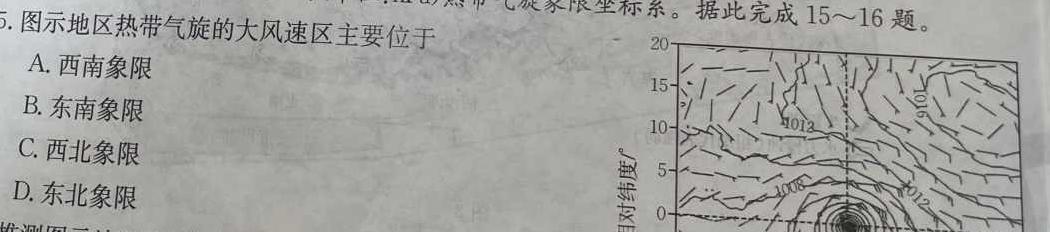 气旋象限坐标系。据此完成 15～16 题。
5. 图示地区热带气旋的大风速区主要位于
A. 西南象限
B. 东南象限
C. 西北象限
D. 东北象限
20
15
10
5
0
对纬度/°
1012
1016
1008
1012